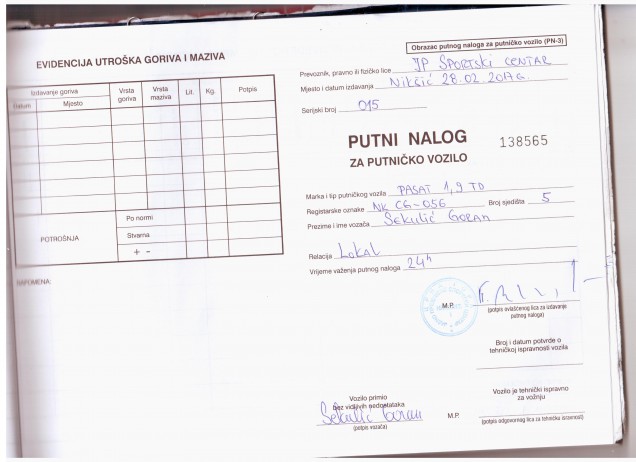 EVIDENCIJA UTROŠKA GORIVA I MAZIVA
Izdavanje goriva
Datum Mjesto
Vrsta goriva
Vrsta maziva
Lit.
Kg.
Potpis
POTROŠNJA
Po normi
Stvarna
+ -
NAPOMENA:
Obrazac putnog naloga za putničko vozilo (PN-3)
Prevoznik, pravno ili fizičko lice JP SPORTSKI CENTAR
Mjesto i datum izdavanja Nikšić 28.02.2017 G.
Serijski broj 015
PUTNI NALOG 138565
ZA PUTNIČKO VOZILO
Marka i tip putničkog vozila PASAT 1,9 TD
Registarske oznake NK CG-056 Broj sjedišta 5
Prezime i ime vozača SEKULIĆ GORAN
Relacija LOKAL
Vrijeme važenja putnog naloga 24h
M.P.
(potpis ovlašćenog lica za izdavanje
putnog naloga)
Broj i datum potvrde o
tehničkoj ispravnosti vozila
Vozilo primio
bez vidljivih nedostataka
Sekulić Goran
(potpis vozača)
Vozilo je tehnički ispravno
za vožnju
M.P.
(potpis odgovornog lica za tehničku ispravnost)